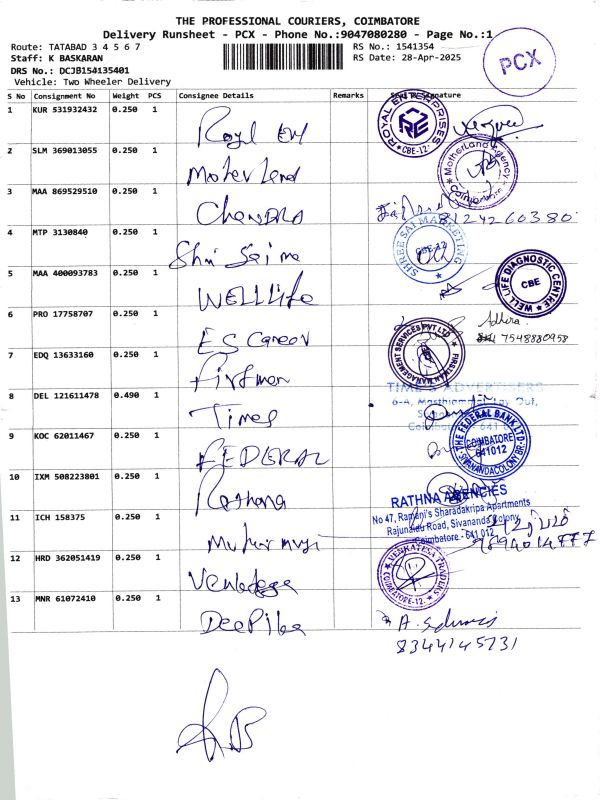 THE PROFESSIONAL COURIERS, COIMBATORE
Delivery Runsheet - PCX - Phone No.:9047080280 - Page No.:1
Route: TATABAD 3 4 5 6 7
RS No.: 1541354
Staff: K BASKARAN
RS Date: 28-Apr-2025
DRS No.: DCJB154135401
Vehicle: Two Wheeler Delivery
PCX
S No Consignment No Weight PCS Consignee Details Remarks Signature
1 KUR 531932432 0.250 1 Royal Ent
ROYAL ENTERPRISES CBE-12
2 SLM 369013055 0.250 1 Motherland
MotherLand Agency Coimbatore
3 MAA 869529510 0.250 1 CHANDRA
8124260380
4 MTP 3130840 0.250 1 Shri Sai ma
SHREE SAI MARKETING CBE-12
5 MAA 400093783 0.250 1 WELL Life
WELL LIFE DIAGNOSTIC CENTRE CBE
6 PRO 17758707 0.250 1 ES Career
7548880958
7 EDQ 13633160 0.250 1 Firstman
FIRSTMAN MANAGEMENT SERVICES PVT LTD
8 DEL 121611478 0.490 1 Times
TIMES ADVERTISERS
9 KOC 62011467 0.250 1 FEDERAL
THE FEDERAL BANK LTD. COIMBATORE 641012 SIVANANDACOLONY BR.
10 IXM 508223801 0.250 1 Rathna
RATHNA AGENCIES
No 47, Ramani's Sharadakripa Apartments
Rajunaidu Road, Sivananda Colony
Coimbatore - 641 012
11 ICH 158375 0.250 1
12 HRD 362051419 0.250 1
VENKATESA TRADERS COIMBATORE-12
13 MNR 61072410 0.250 1 Deepika
8344145731